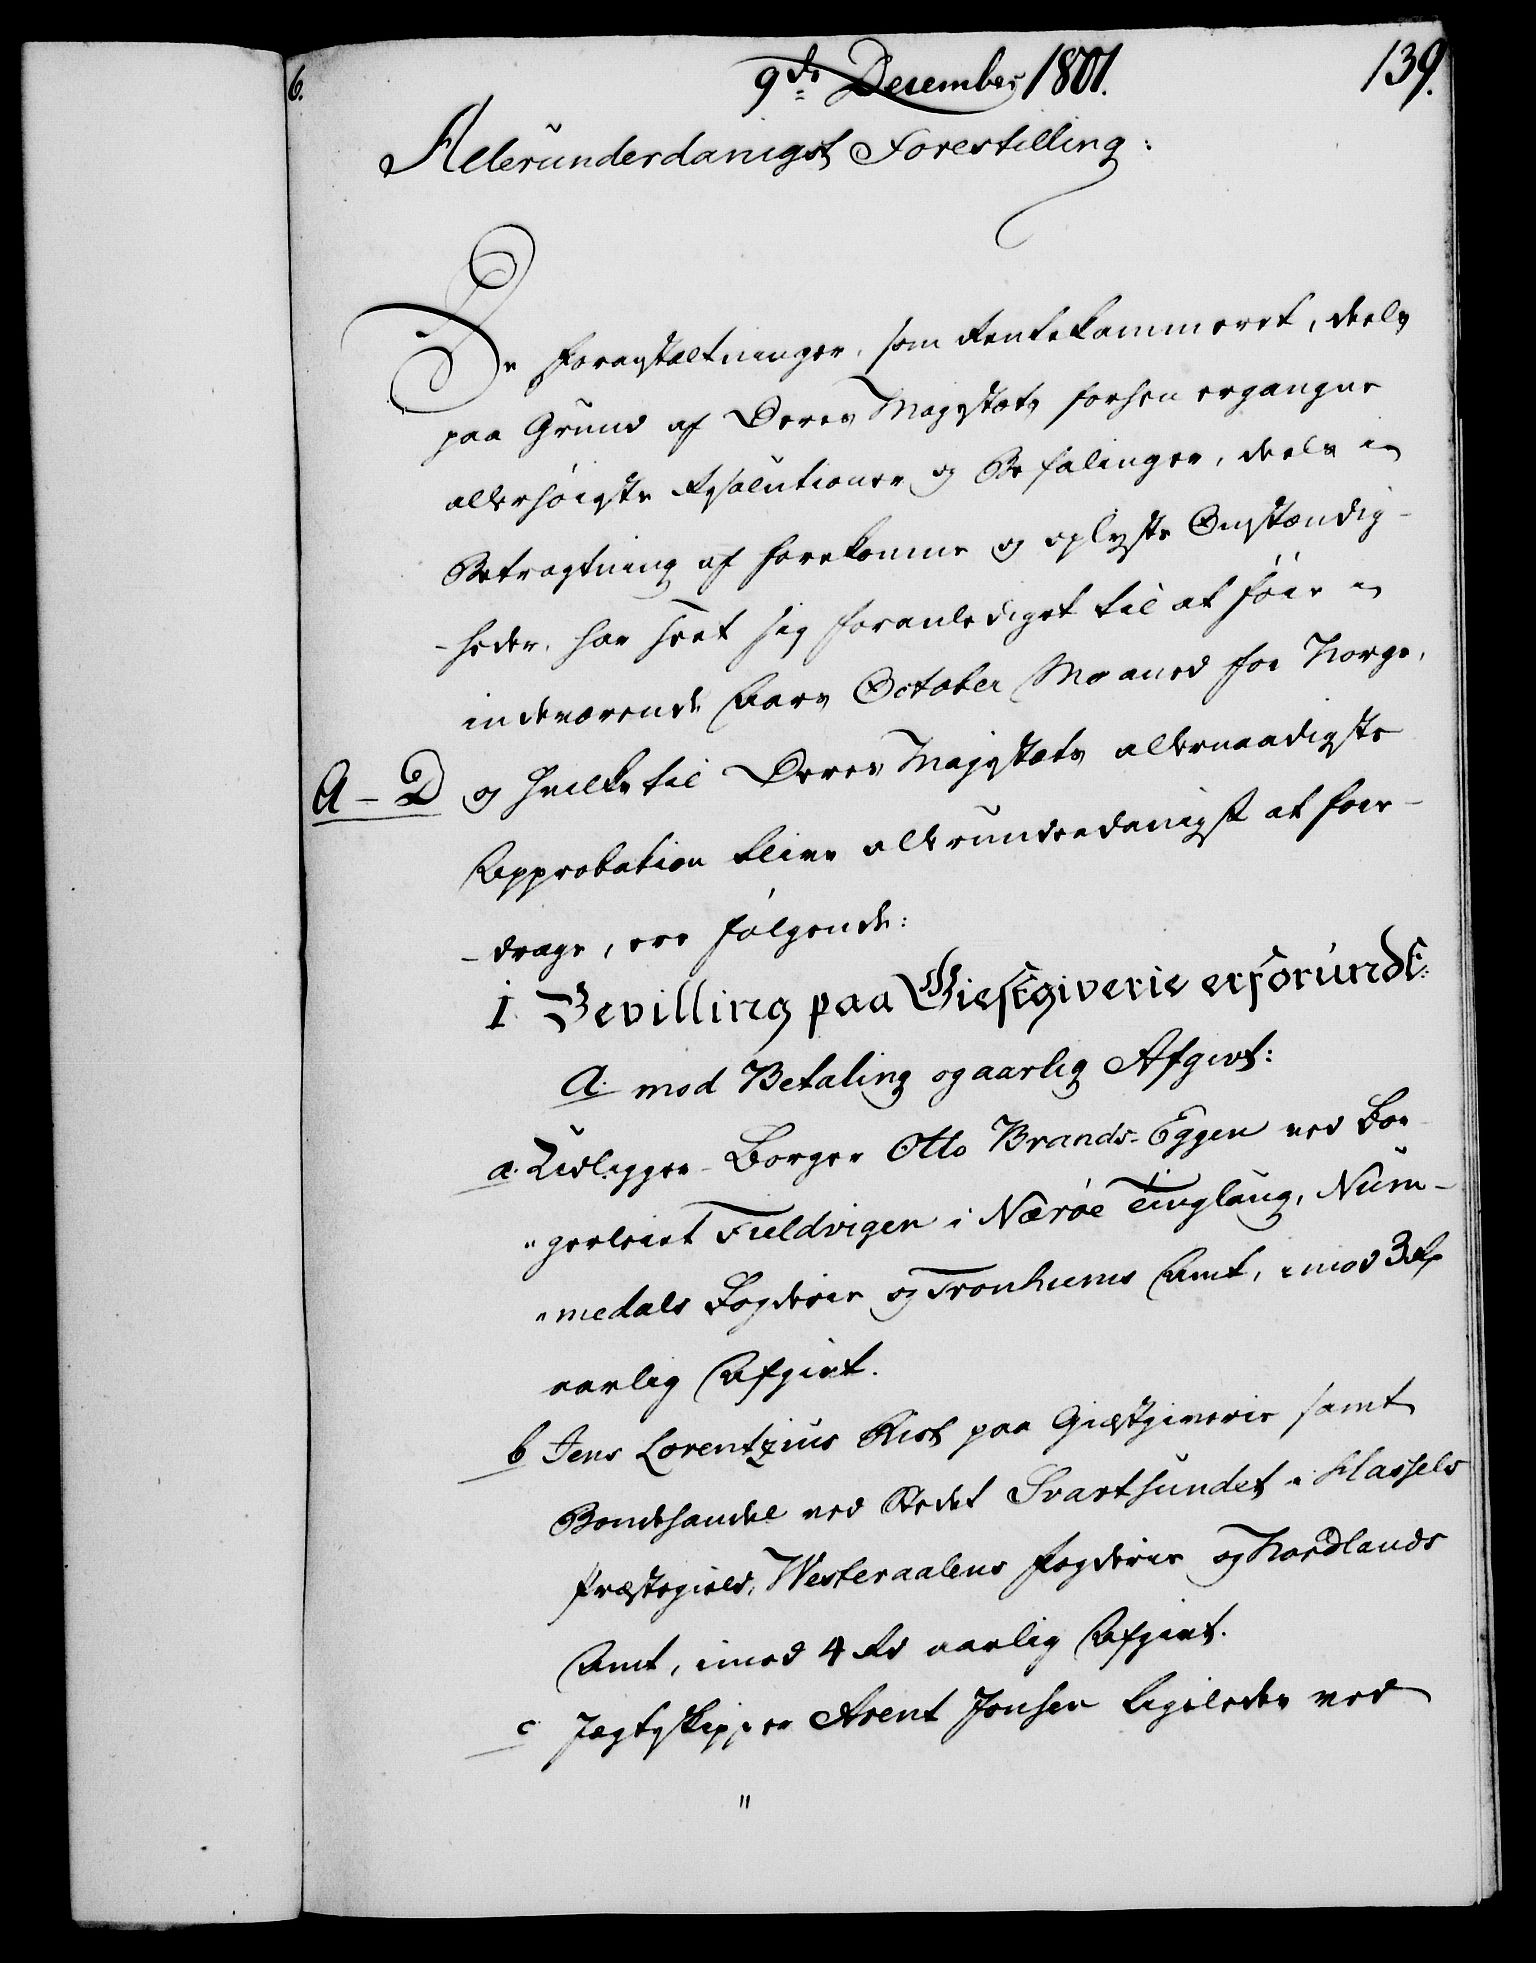 6.
9de December 1801.
139.
Allerunderdanigst Forestilling:
De Foranstaltninger, som Rentekammeret, deels
paa Grund af Deres Majestæts forhen ergangne
allerhøigste Resolutioner og Befalinger, deels i
Betragtning af forekomne og oplyste Omstændig-
-heder, har seet sig foranlediget til at føie i
indeværende Aars October Maaned for Norge,
A-D og hvilke til Deres Majestæts allernaadigste
Approbation blive allerunderdanigst at fore-
-drage, ere følgende:
I Bevilling paa Giestgiverie erforundt:
A. mod Betaling og aarlig Afgivt:
a. Udligger-Borger Otto Brands-Eggen ved Bor-
"gerleiet Fuldvigen i Nærøe Tinglaug, Num-
"medals Fogderie og Tronhiems Amt, imod 3 Rd
aarlig Afgivt.
b Jens Lorentzius Rist paa Giæstgiverie samt
Bondehandel ved Stedet Svartsundet i Hassels
Præstegield, Westeraalens Fogderie og Nordlands
Amt, imod 4 Rd aarlig Afgivt.
c Jægtskipper Arent Jensen ligeledes ved
"